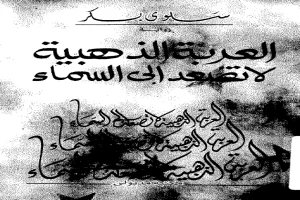 سلوى بكر
رواية
العربة الذهبية
لا تصعد إلى السماء
العربة الذهبية لا تصعد إلى السماء
العربة الذهبية لا تصعد إلى السماء
العربة الذهبية لا تصعد إلى السماء